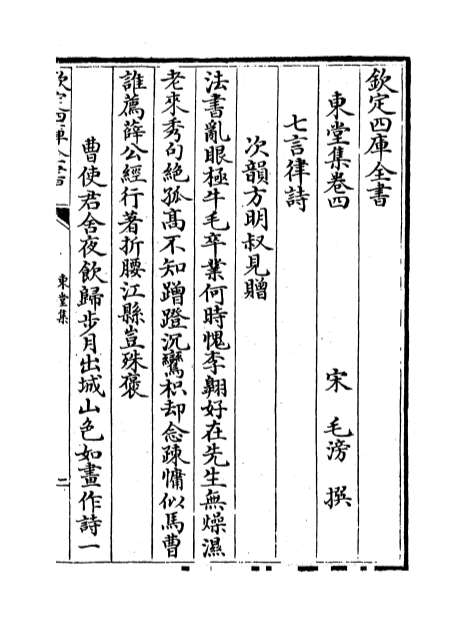 欽定四庫全書
東堂集卷四
宋 毛滂 撰
七言律詩
次韻方明叔見贈
法書亂眼極牛毛卒業何時愧李翺好在先生無燥濕
老來秀句絶孤髙不知蹭蹬沉鸞枳却念疎慵似馬曹
誰薦薛公經行著折腰江縣豈殊褒
曹使君舍夜飲歸步月出城山色如畫作詩一
東堂集
二